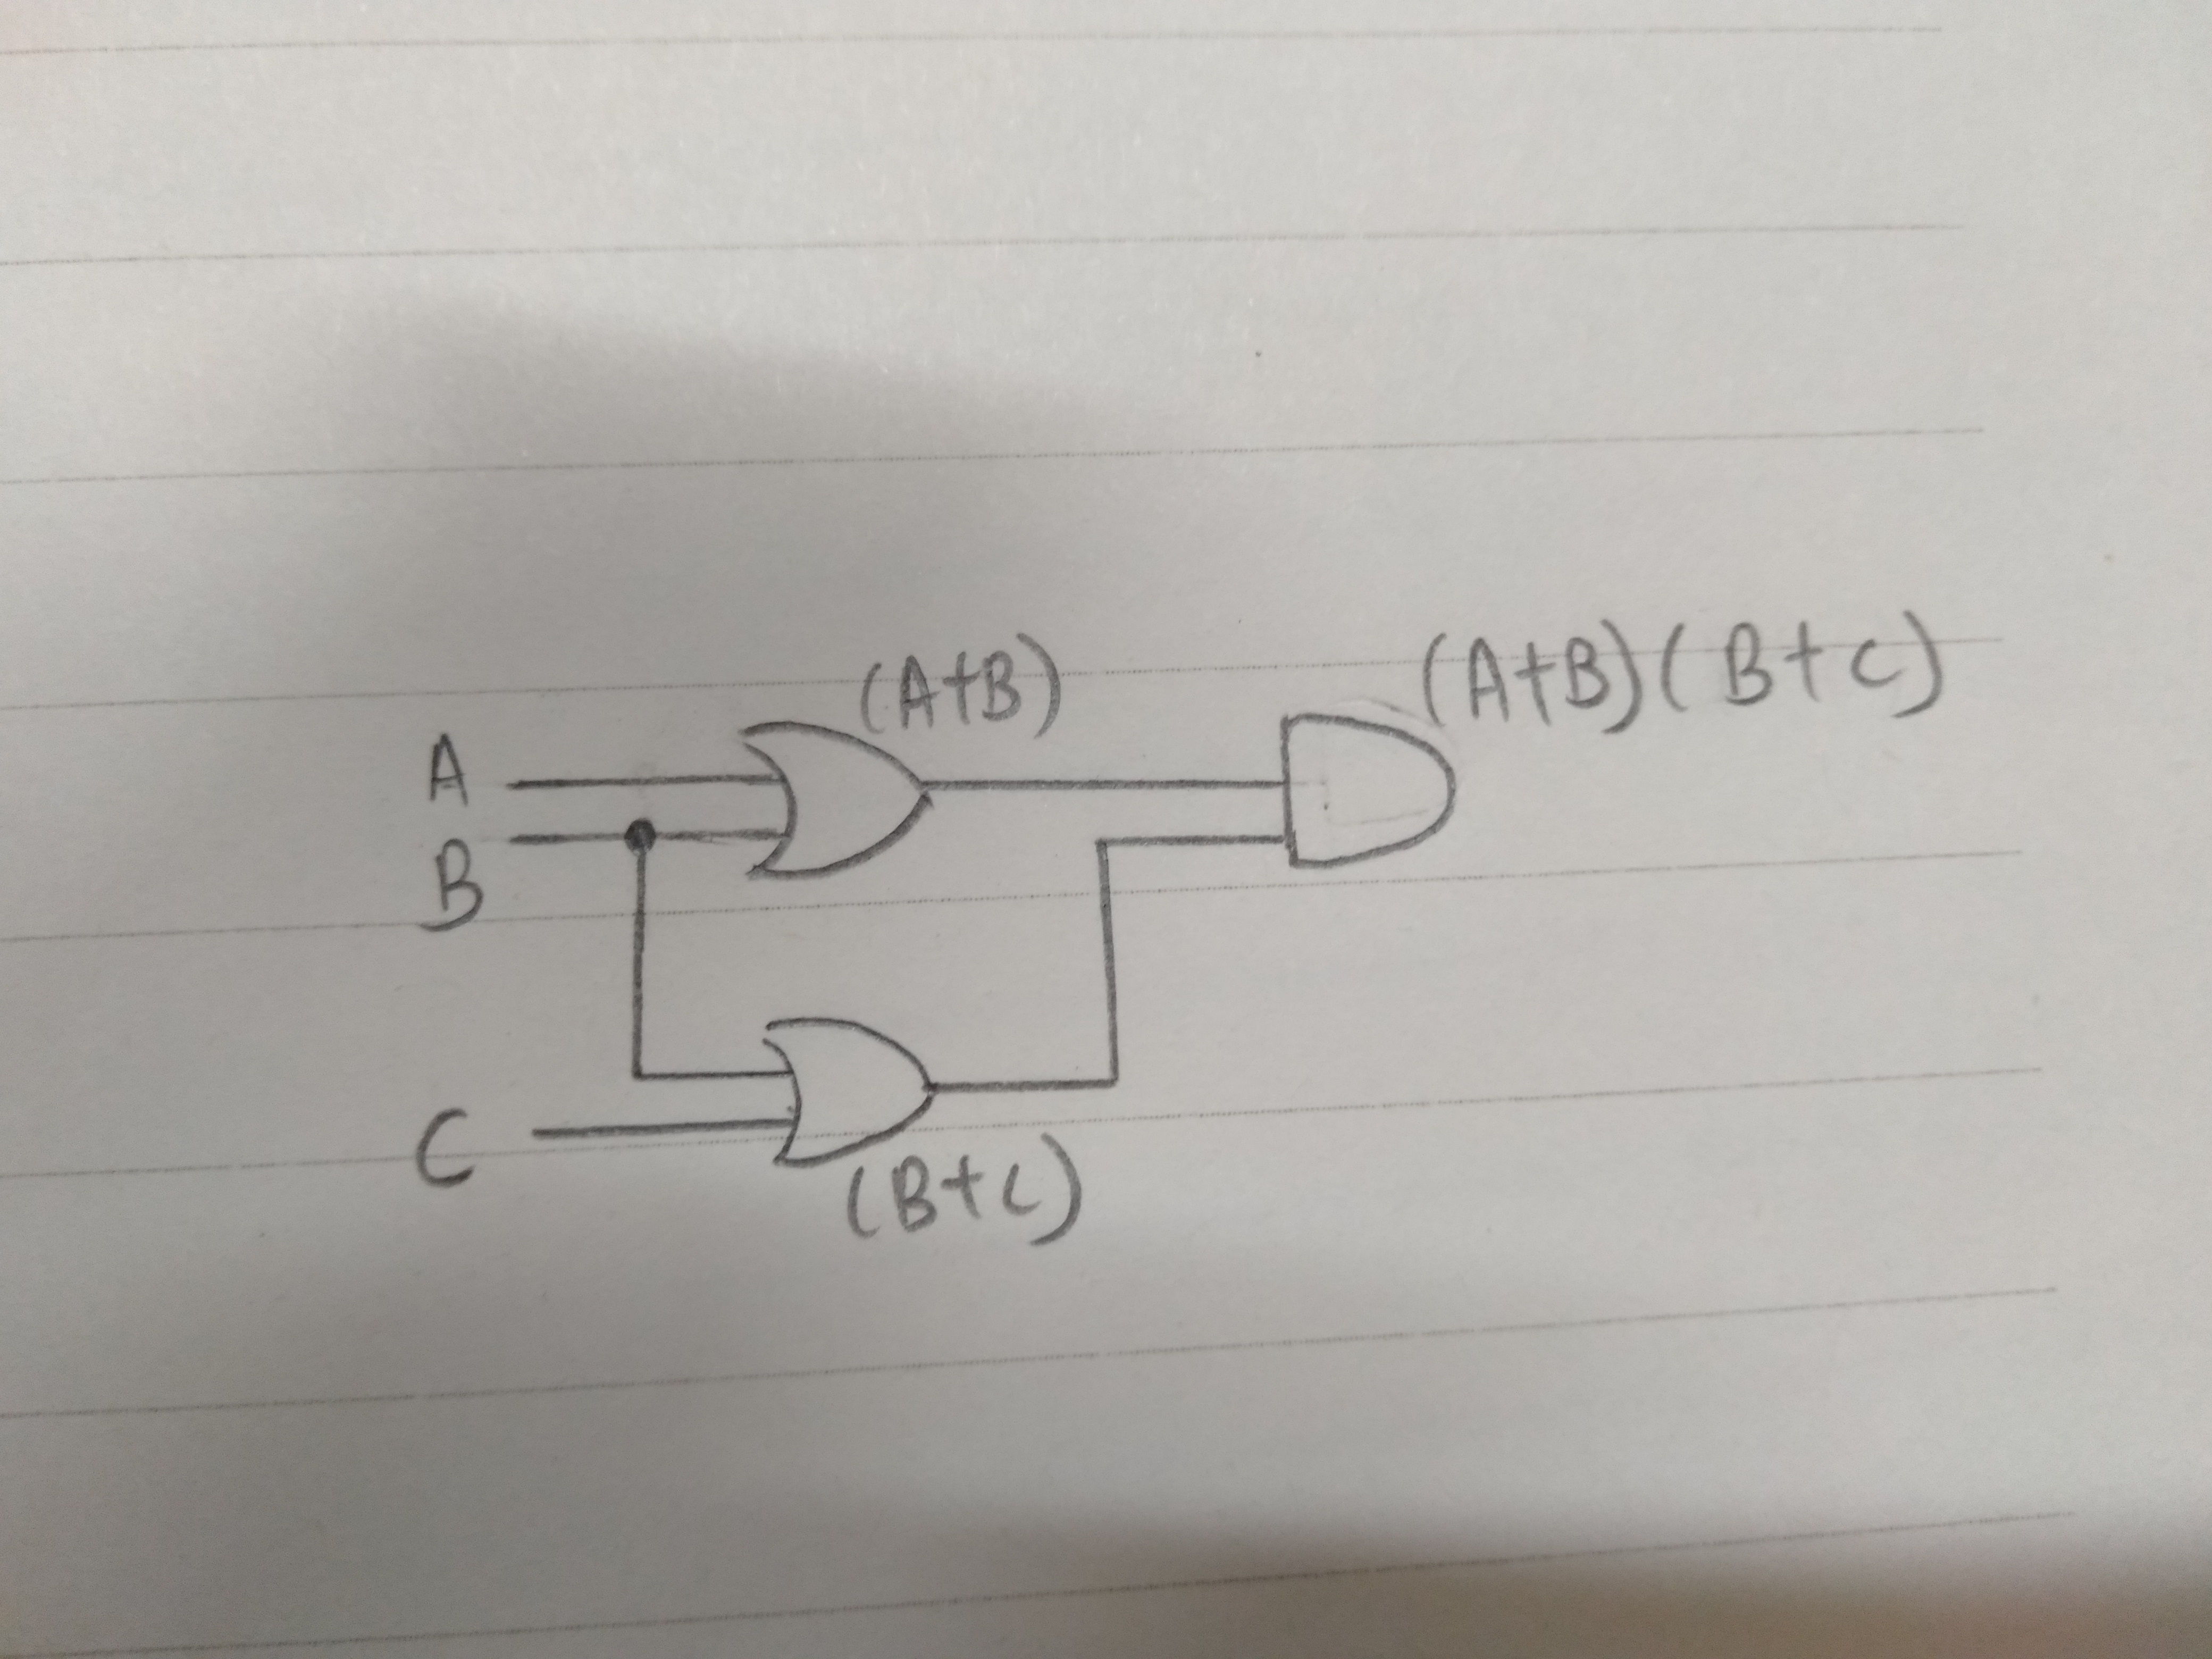 (A+B)
(A+B)(B+C)
A
B
C
(B+C)